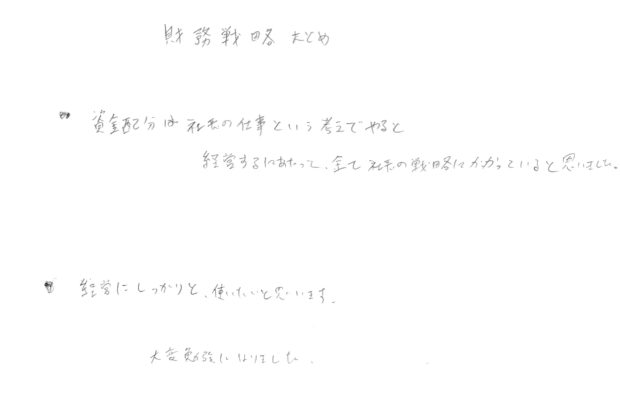 財務戦略まとめ
・ 資金配分は社長の仕事という考えでやると
経営するにあたって、全て社長の戦略にかかっていると思いました。
・ 経営にしっかりと、使いたいと思います。
大変勉強になりました。